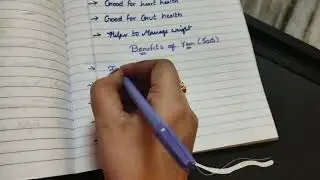 → Good for heart health
→ Good for Gut health
→ Helps to Manage weight
Benefits of Yam (Suts)
→